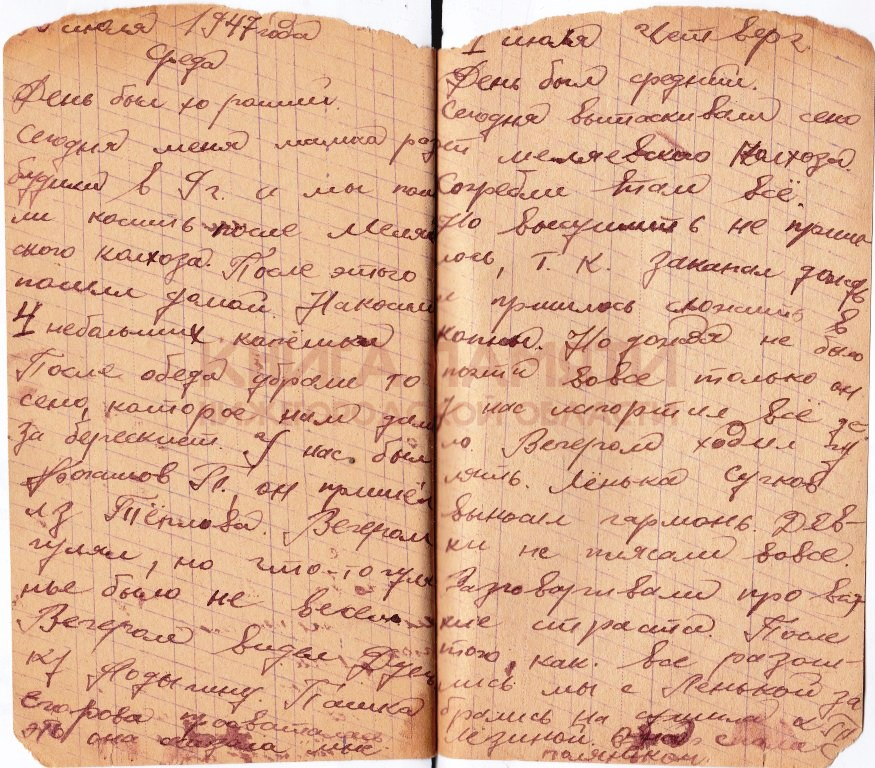 июля 1947 года
Среда
День был хороший.
Сегодня меня мамка раз
будили в 9 г. и мы пош
ли косить после Меляе
ского колхоза. После этого
пошли домой. Накосили
4 небольших копёшки
После обеда убрали то
сено, которое нам дали
за березкией. У нас был
П., он пришёл
из Тёплова. Вечером
гулял, но что-то гуля
нье было не весёл
Вечером видел Дусь
ку Лодыгину. Пашка
Егорова просватали
это она сказала мне.
1 июля Четверг
День был средний.
Сегодня вытаскивали сено
из меляевского колхоза.
Согребли там всё.
Но высушить не приш
лось, т. к. закапал дождь
и пришлось сложить в
копны. Но дождя не было
почти вовсе только он
у нас испортил всё де
ло. Вечером ходил гу
лять. Лёнька Сучков
выносил гармонь. Дев-
ки не плясали вовсе.
Разговаривали про вся
кие страсти. После
того, как все разош-
лись мы с Ленькой за
брались на сушила к
Лёзиной.
полянском.
КНИГА ПАМЯТИ
НИЖЕГОРОДСКОЙ ОБЛАСТИ